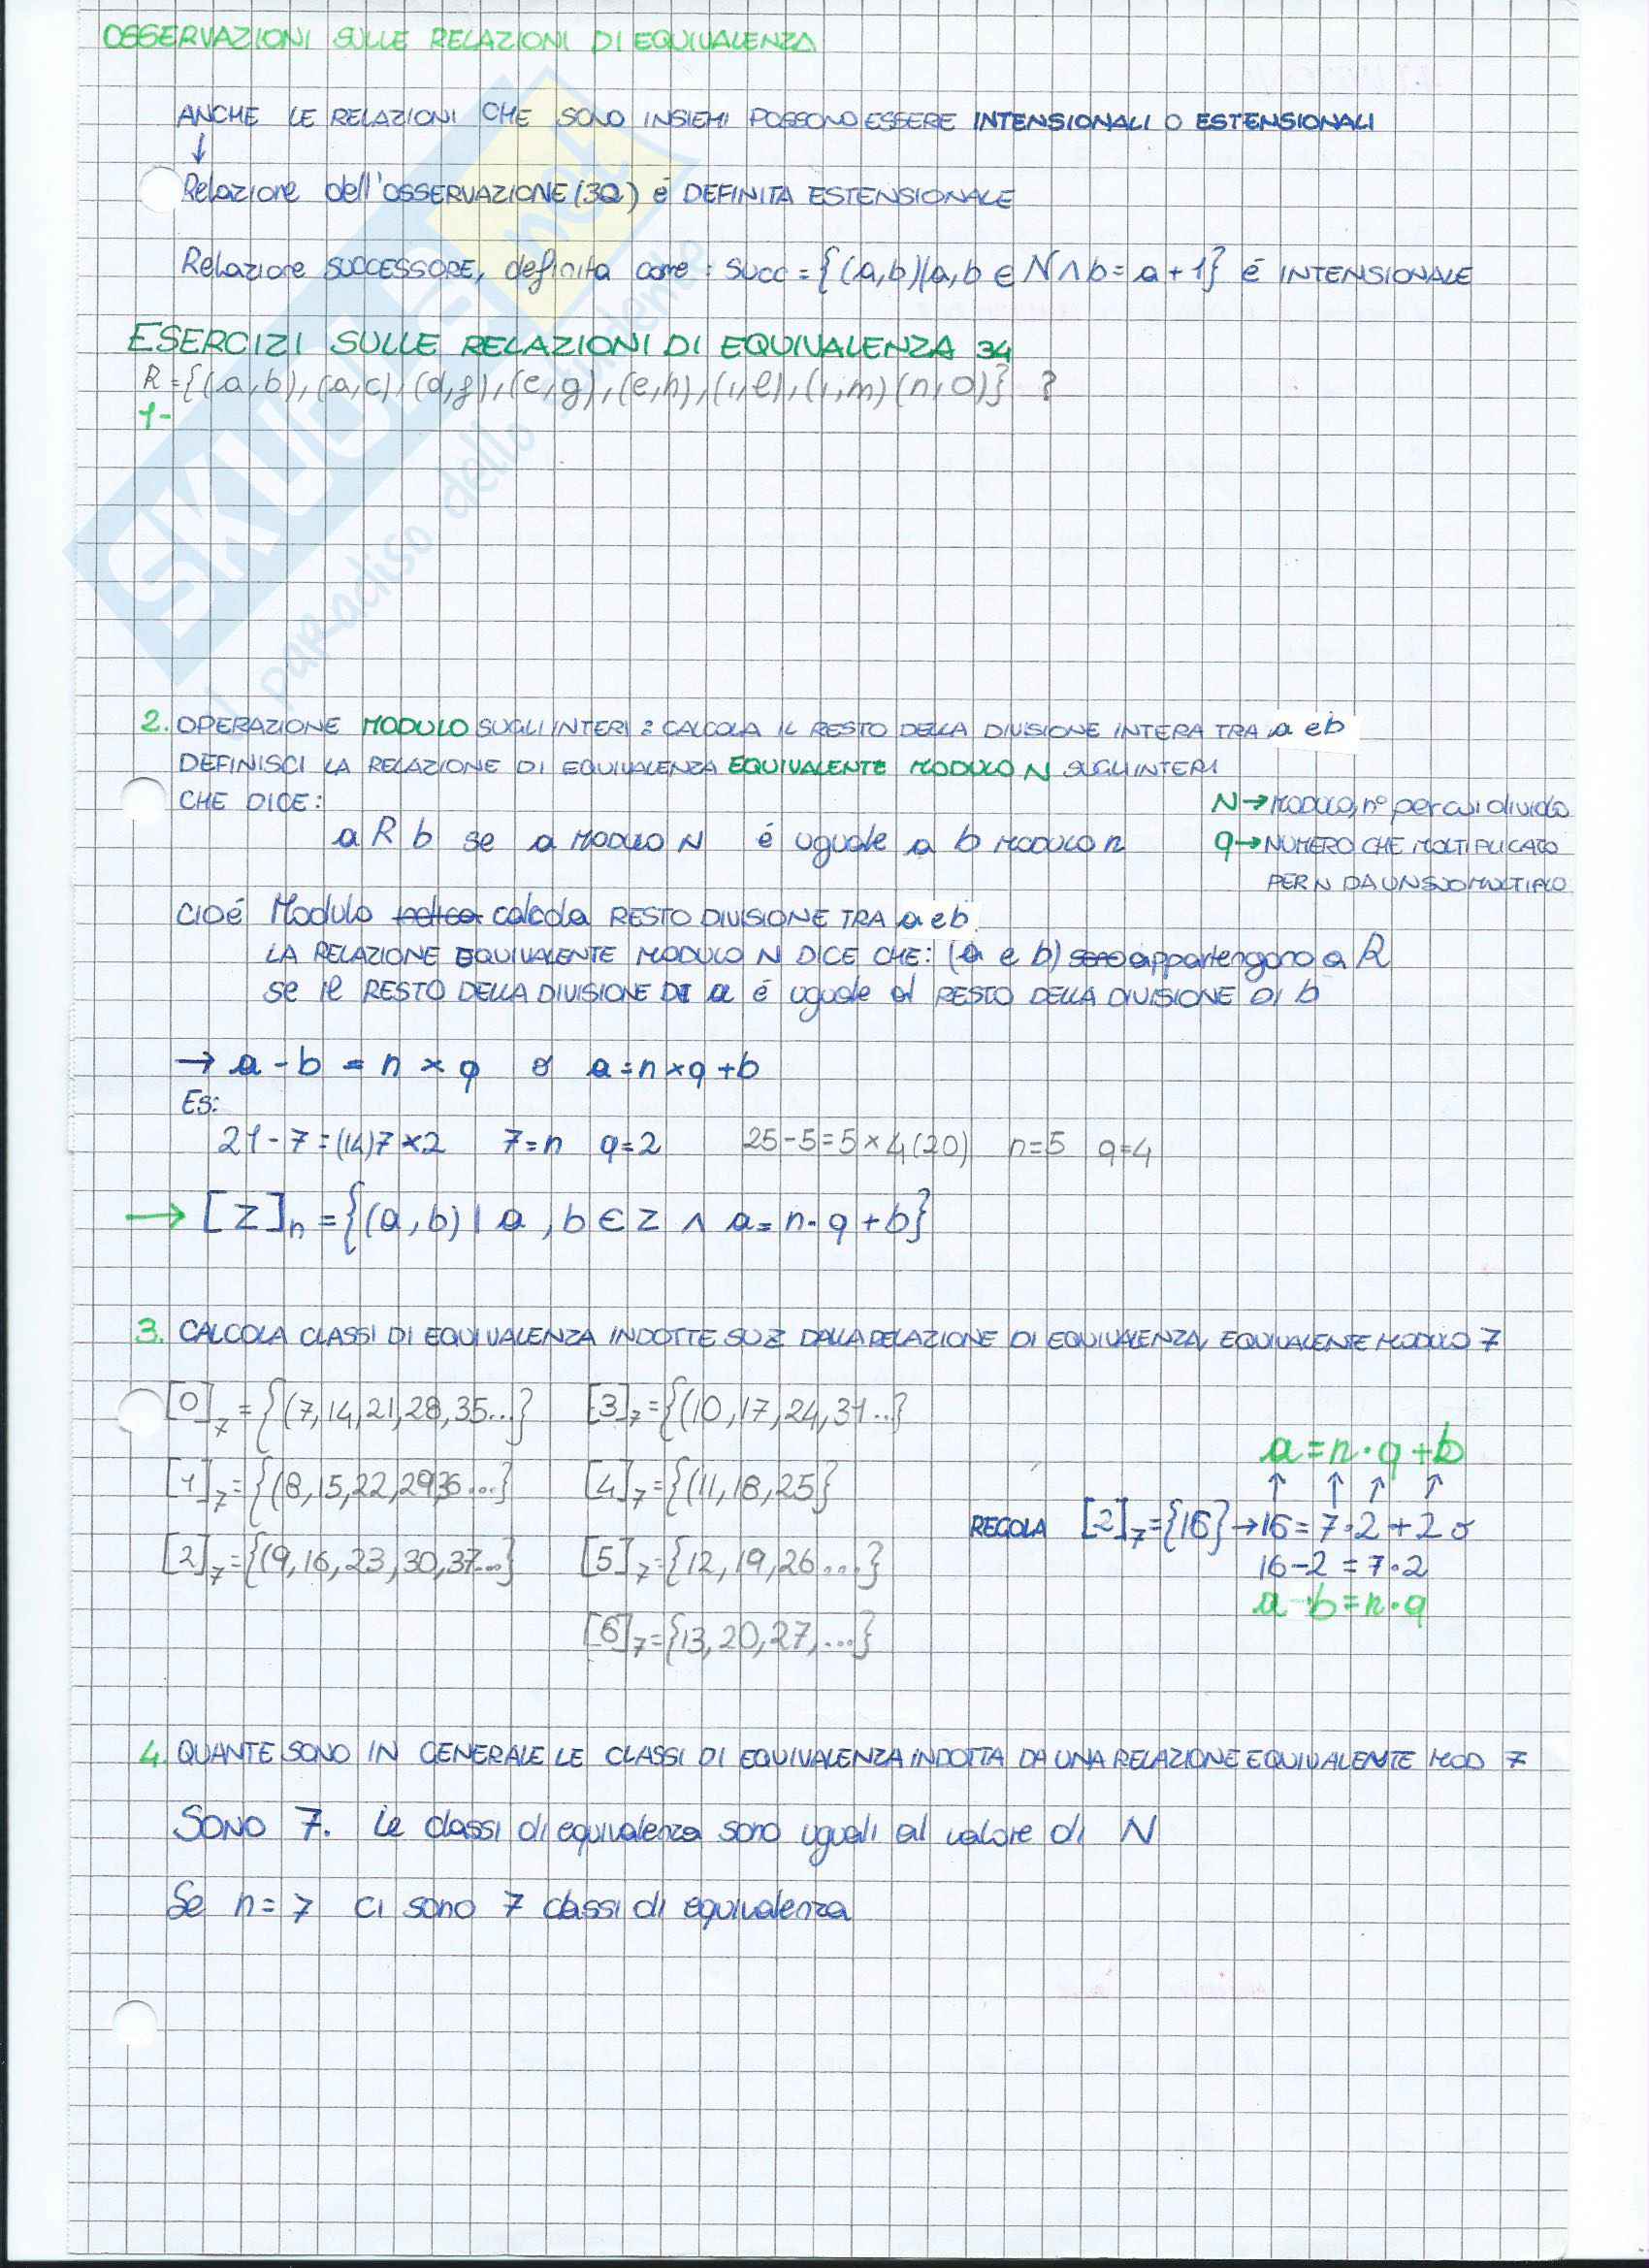 OSSERVAZIONI SULLE RELAZIONI DI EQUIVALENZA
ANCHE LE RELAZIONI CHE SONO INSIEMI POSSONO ESSERE INTENSIONALI O ESTENSIONALI
↓
Relazione dell'OSSERVAZIONE (32) é DEFINITA ESTENSIONALE
Relazione SUCCESSORE, definita come : Succ = {(a,b)|a,b ∈ N ∧ b = a + 1} é INTENSIONALE
ESERCIZI SULLE RELAZIONI DI EQUIVALENZA 34
R = {(a,b), (a,c), (d,f), (e,g), (e,h), (i,l), (i,m) (n,o)} ?
1-
2. OPERAZIONE MODULO SUGLI INTERI : CALCOLA IL RESTO DELLA DIVISIONE INTERA TRA a e b
DEFINISCI LA RELAZIONE DI EQUIVALENZA EQUIVALENTE MODULO N SUGLI INTERI
CHE DICE: N → MODULO, n° per cui divido
a R b se a MODULO N é uguale a b MODULO n q → NUMERO CHE MOLTIPLICATO
PER N DA UN SUO MULTIPLO
CIOÉ Modulo calcola RESTO DIVISIONE TRA a e b.
LA RELAZIONE EQUIVALENTE MODULO N DICE CHE: (a e b) appartengono a R
se il RESTO DELLA DIVISIONE DI a é uguale al RESTO DELLA DIVISIONE DI b
→ a - b = n × q o a = n × q + b
Es:
21 - 7 = (14) 7 × 2 7 = n q = 2 25 - 5 = 5 × 4 (20) n = 5 q = 4
→ [Z]n = {(a,b) | a, b ∈ Z ∧ a = n · q + b}
3. CALCOLA CLASSI DI EQUIVALENZA INDOTTE SU Z DALLA RELAZIONE DI EQUIVALENZA, EQUIVALENTE MODULO 7
[0]7 = {(7,14,21,28,35...} [3]7 = {(10,17,24,31..}
a = n · q + b
[1]7 = {(8,15,22,29,36...} [4]7 = {(11,18,25}
↑ ↑ ↑ ↑
REGOLA [2]7 = {16} → 16 = 7 · 2 + 2 o
[2]7 = {(9,16,23,30,37...} [5]7 = {12,19,26...}
16 - 2 = 7 · 2
a - b = n · q
[6]7 = {13,20,27,...}
4. QUANTE SONO IN GENERALE LE CLASSI DI EQUIVALENZA INDOTTA DA UNA RELAZIONE EQUIVALENTE MOD 7
SONO 7. Le classi di equivalenza sono uguali al valore di N
Se n = 7 ci sono 7 classi di equivalenza
SKUOLA.net
il paradiso dello studente